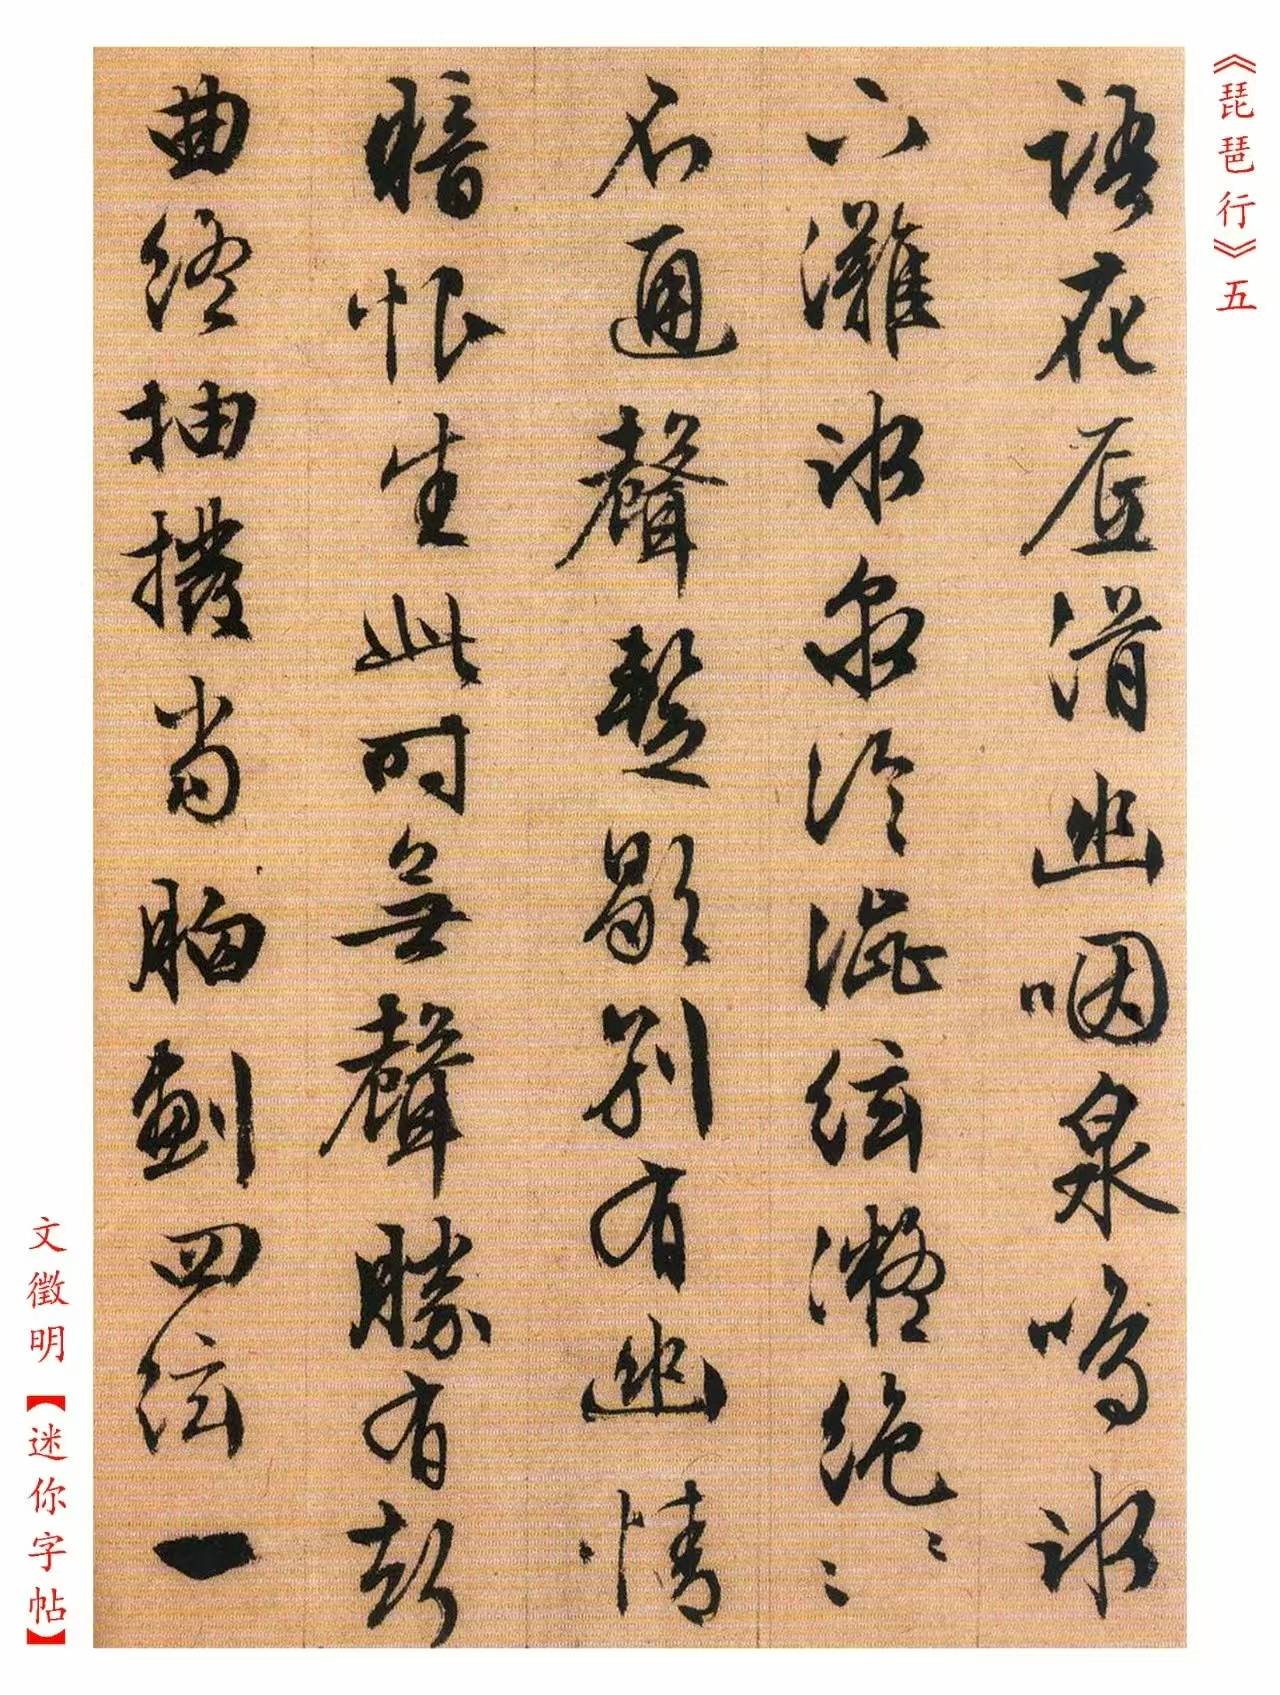 《琵琶行》五
語花底滑幽咽泉鳴冰
下灘冰泉冷澁絃凝絕〻〻
不通聲暫歇別有幽情
暗恨生此時無聲勝有聲
曲終抽撥當胸劃四絃一
文徵明【迷你字帖】